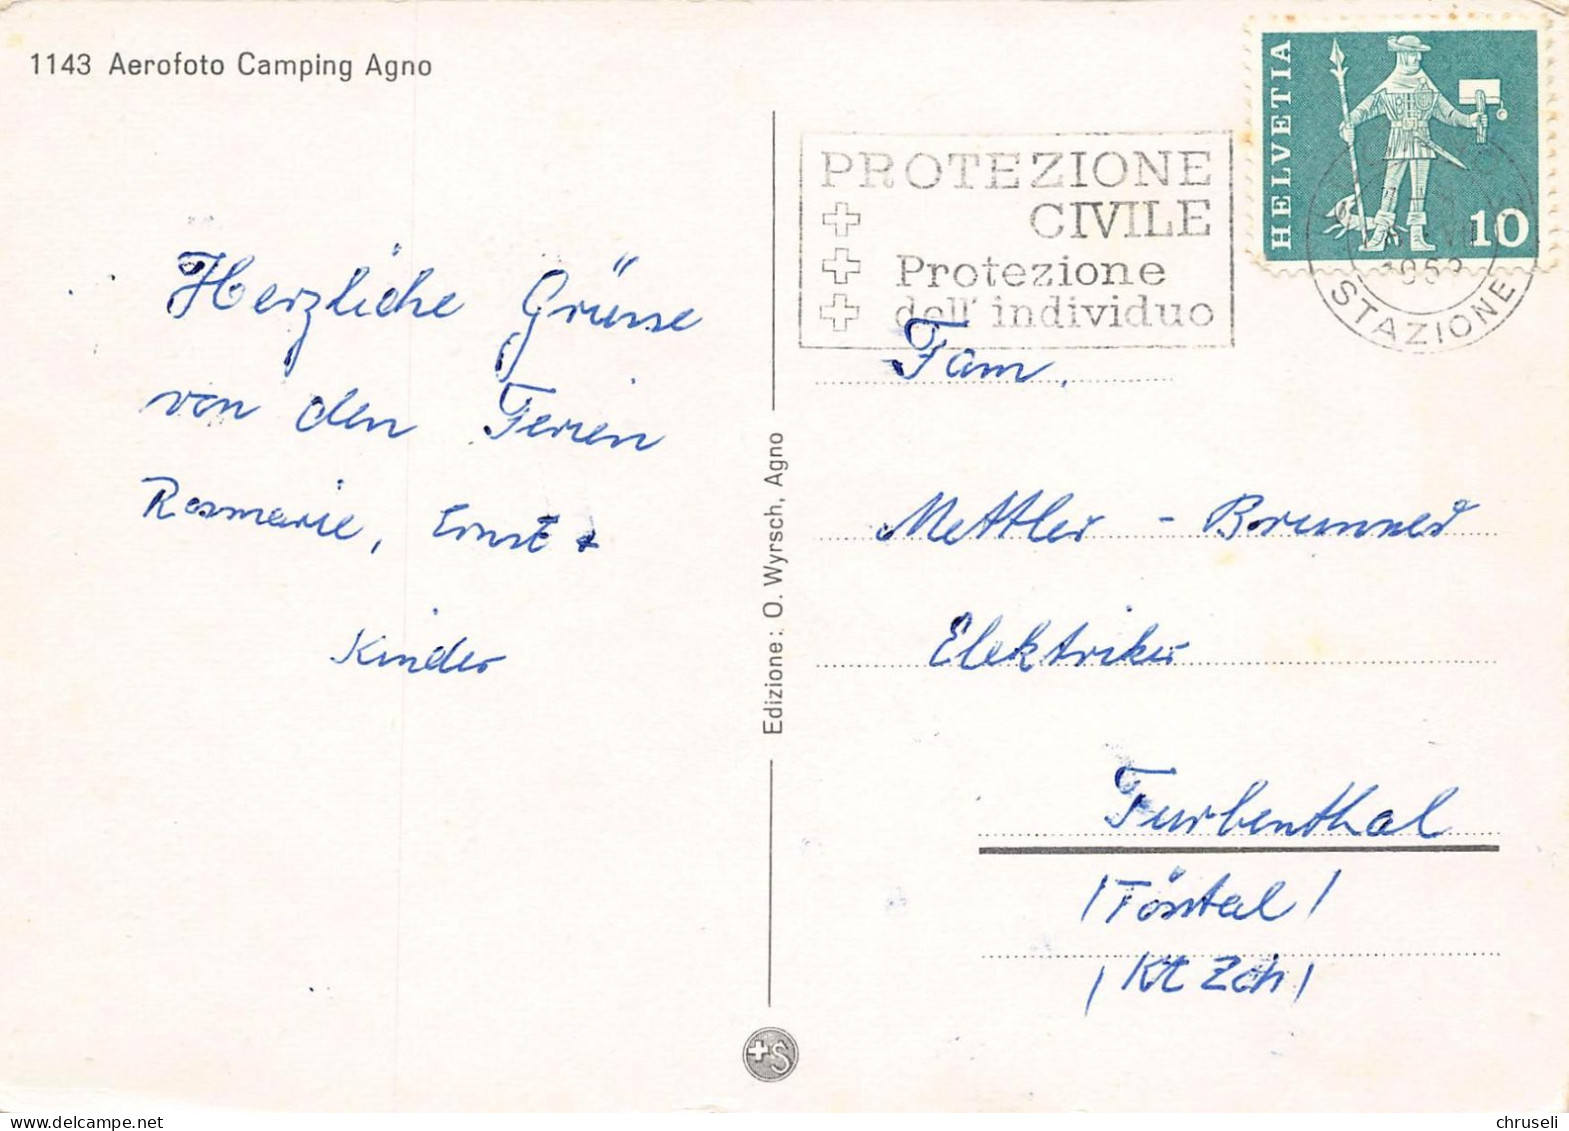 1143 Aerofoto Camping Agno
HELVETIA
10
PROTEZIONE
CIVILE
Protezione
dell' individuo
STAZIONE
Herzliche Grüsse
von den Ferien
Rosmarie, Ernst +
Kinder
Edizione: O. Wyrsch, Agno
Fam.
Mettler - Brunner
Elektriker
Turbenthal
(Tösstal)
(Kt Zch)
+S
chruseli